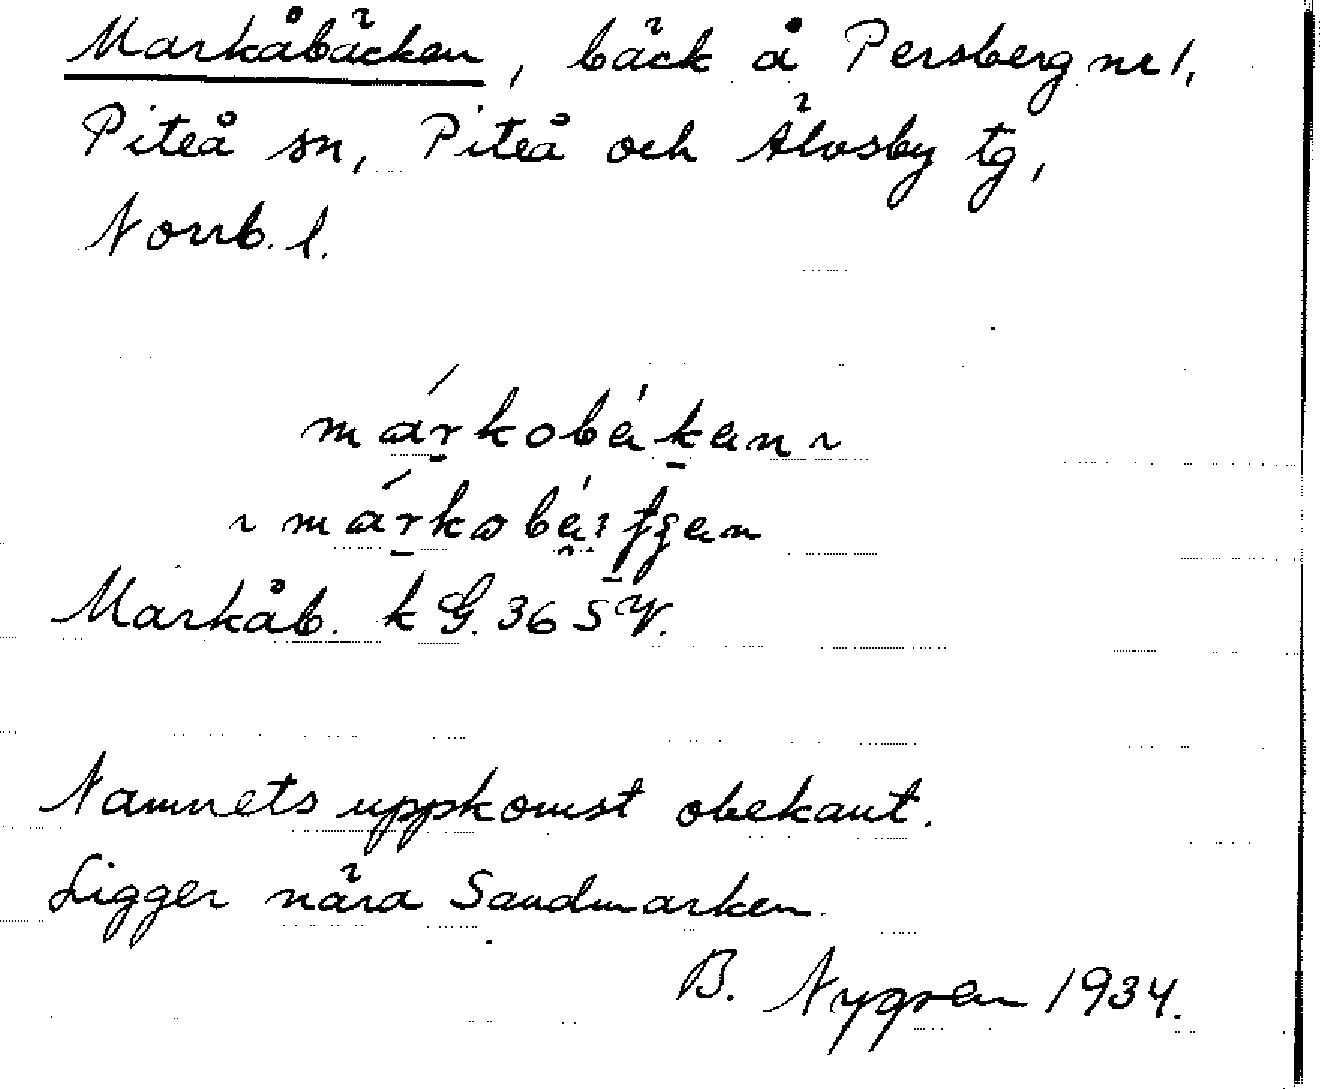 Markåbäcken, bäck å Persberg nr 1,
Piteå sn, Piteå och Älvsby tg,
Norrb. l.
márkobákan ~
~ márkobáitʃan
Markåb. k G. 36 SV.
Namnets uppkomst obekant.
Ligger nära Sandmarken.
B. Nygren 1934.